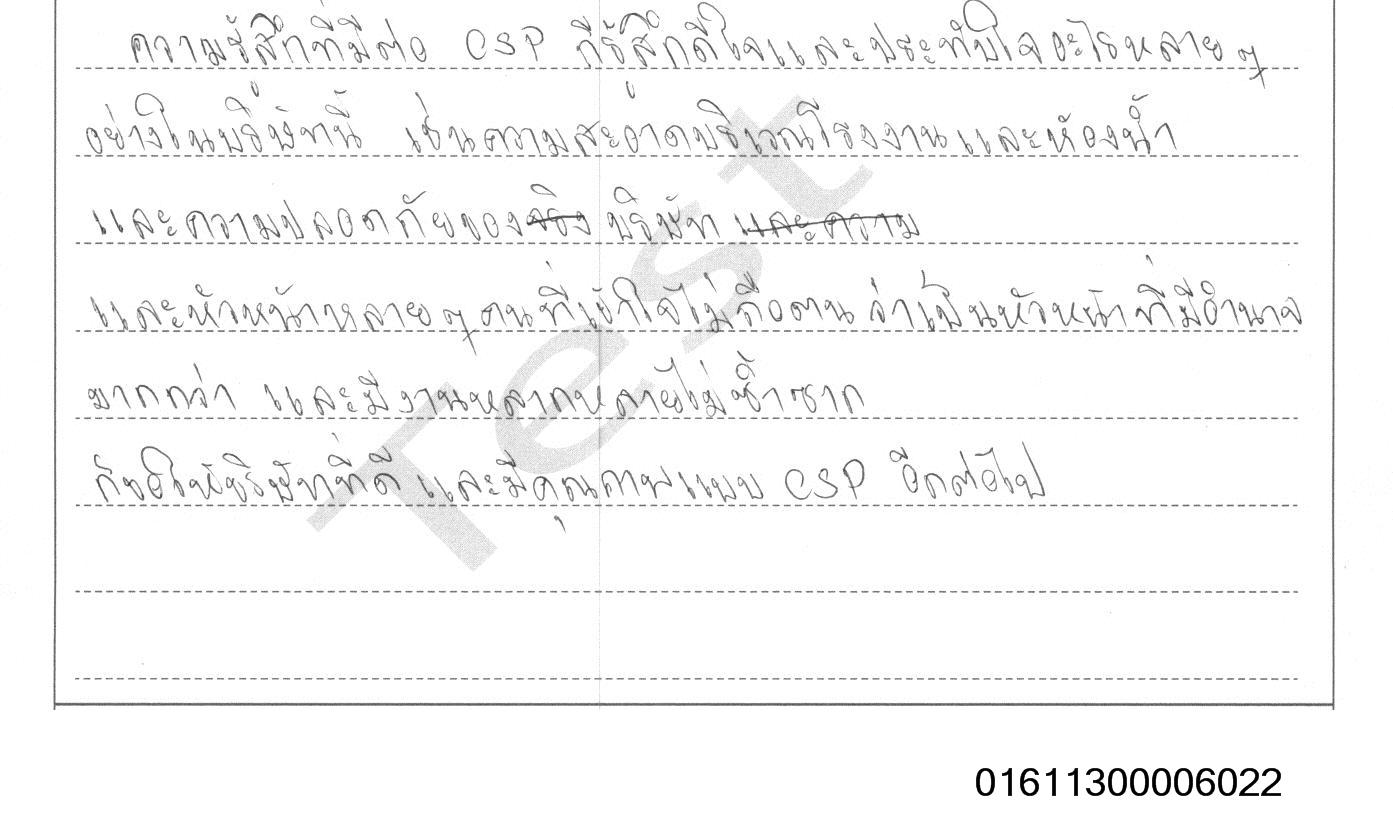 ความรู้สึกที่มีต่อ CSP ก็รู้สึกดีใจและประทับใจอะไรหลาย ๆ
อย่างในบริษัทนี้ เช่นความสะอาดบริเวณโรงงานและห้องน้ำ
และความปลอดภัยของจริง บริษัท และความ
และหัวหน้าหลาย ๆ คนที่เข้าใจไม่ถือตน ว่าเป็นหัวหน้าที่มีอำนาจ
มากกว่า และมีงานหลากหลายไม่ซ้ำซาก
ก็ขอให้บริษัทที่ดี และมีคุณภาพแบบ CSP อีกต่อไป
Test
01611300006022